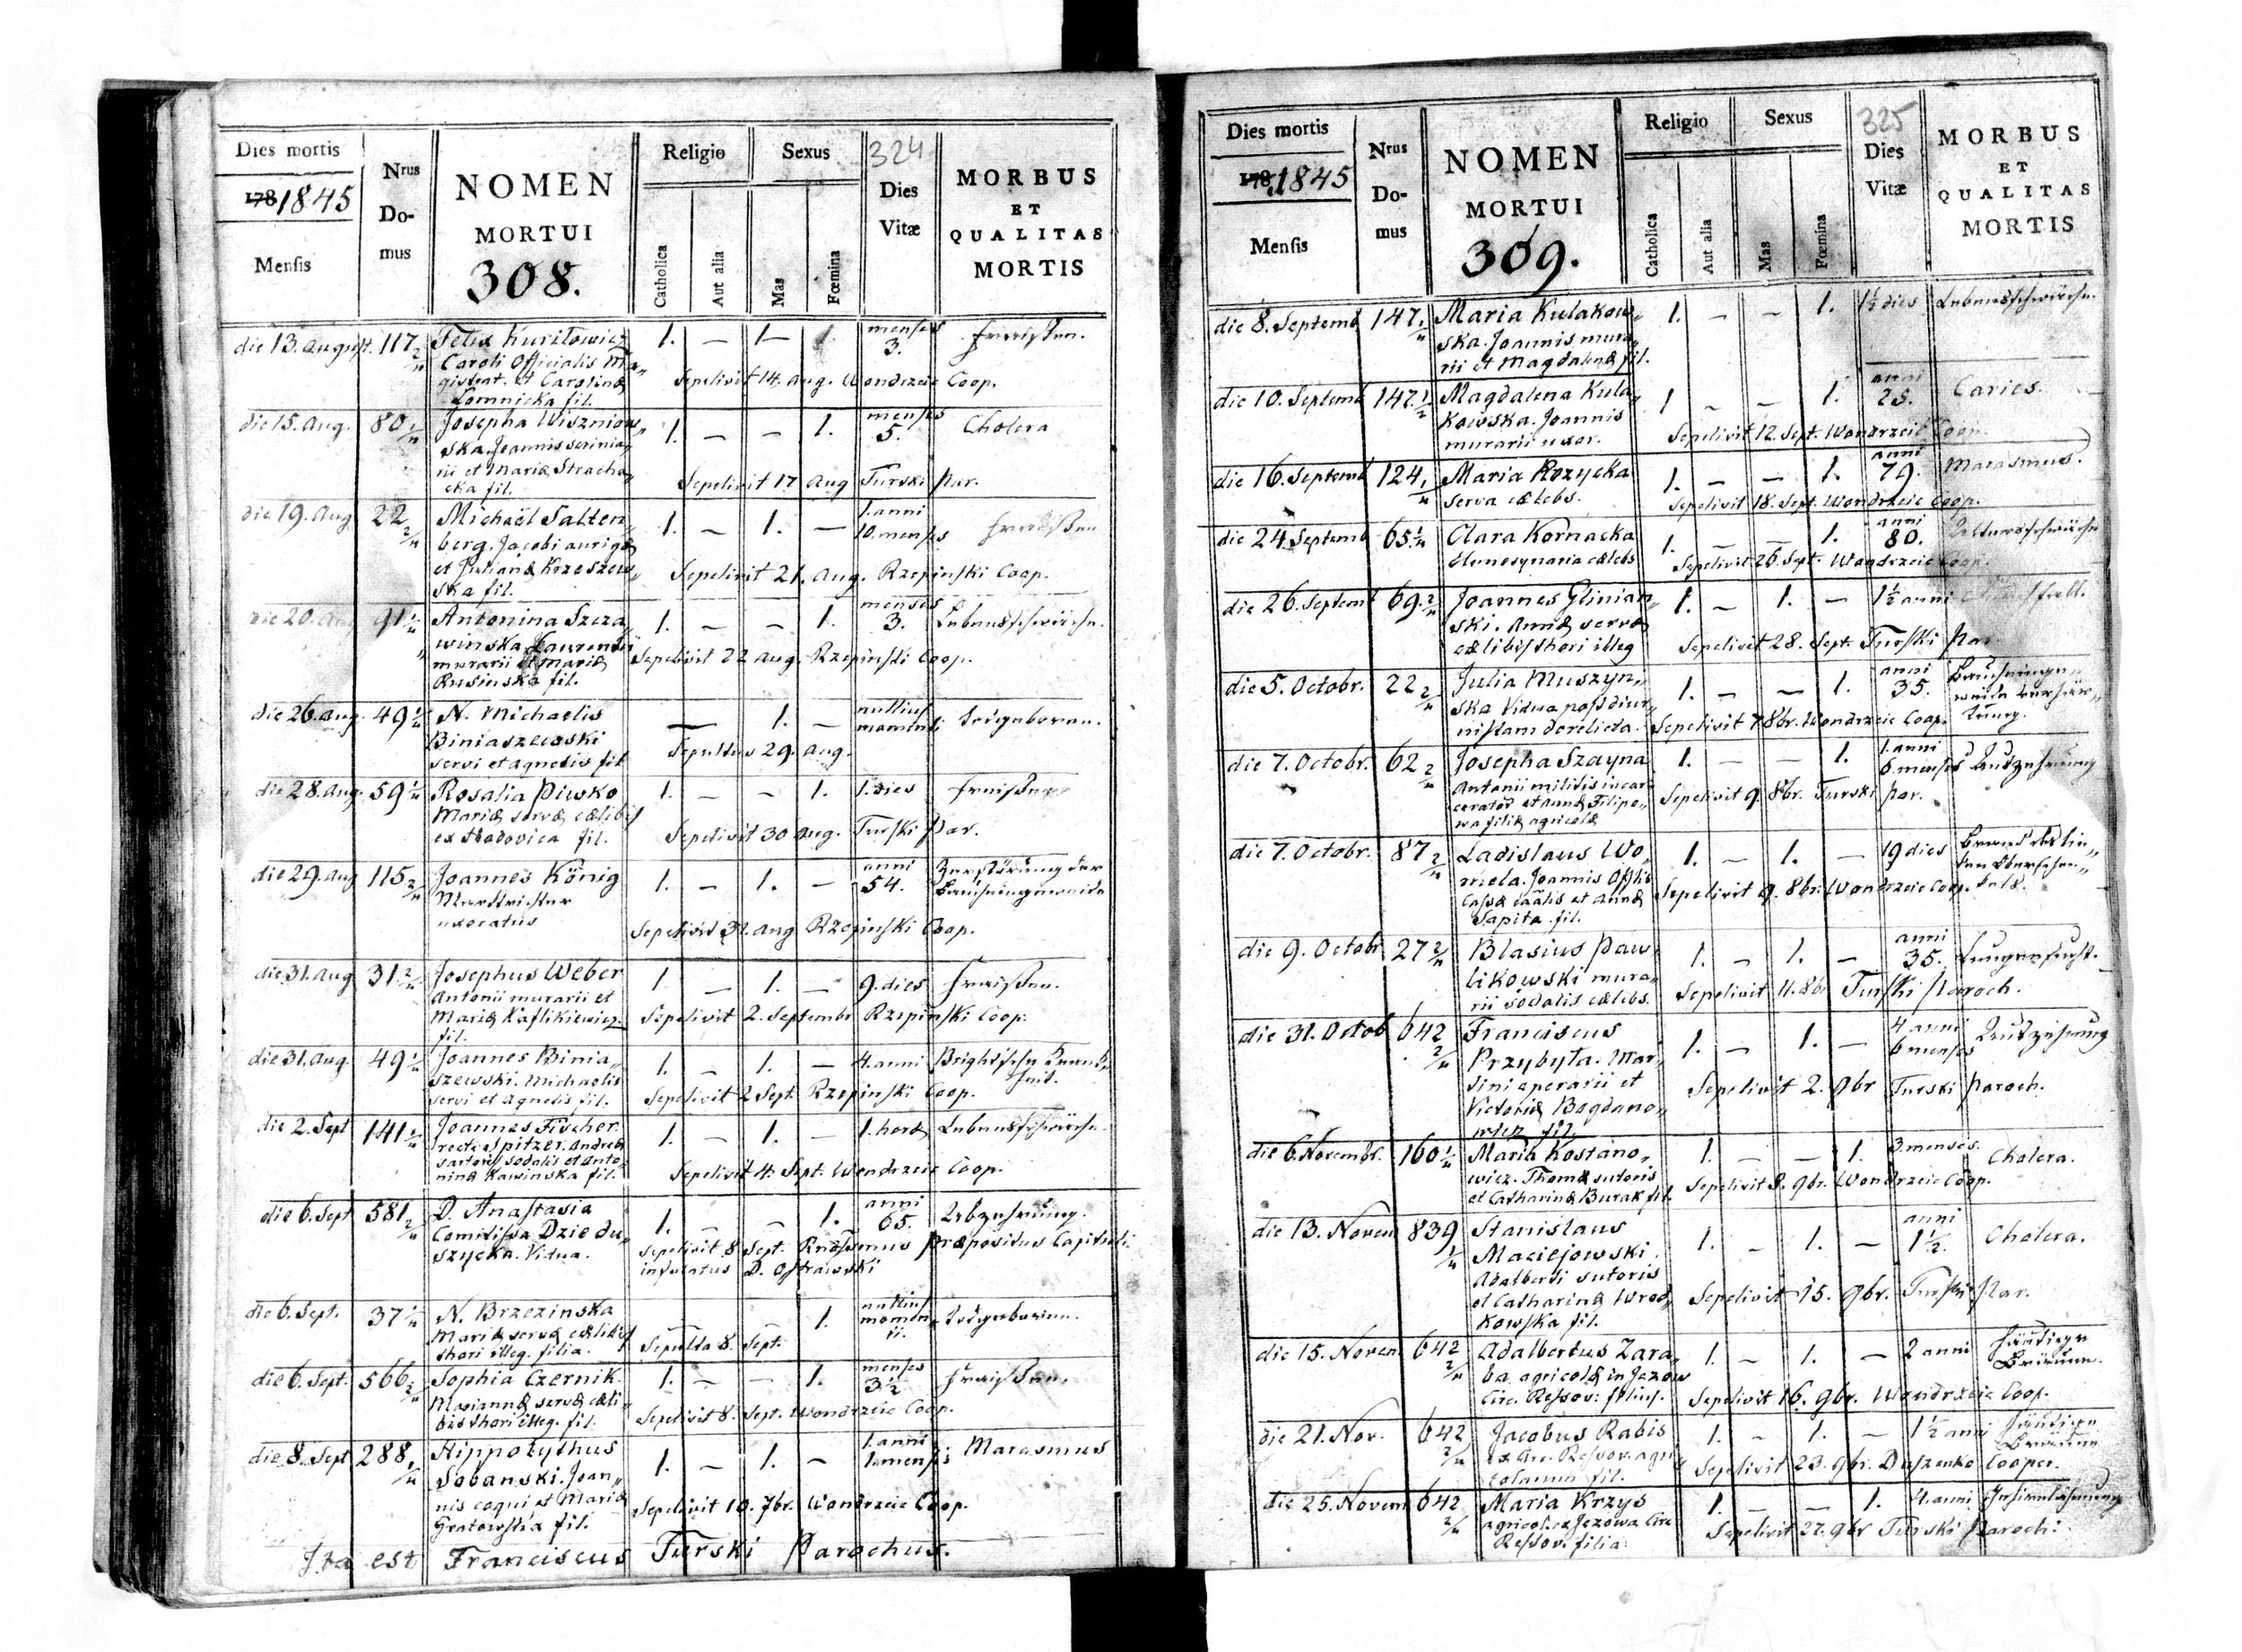 324
Dies mortis
178 1845
Mensis
Nrus
Do-
mus
NOMEN
MORTUI
308.
Religio
Catholica
Aut alia
Sexus
Mas
Fœmina
Dies
Vitæ
MORBUS
ET
QUALITAS
MORTIS
die 13. august. 117 2/4 Felix Kuriłowicz 1. — 1. — menses 3. Fraissen.
Caroli Officialis Ma„
gistrat. et Carolinæ
Łomnicka fil.
Sepelivit 14. aug. Wondrzeic Coop.
die 15. Aug. 80 1/4 Josepha Wiszniow„ 1. — — 1. menses 5. Cholera
ska. Joannis scrinia„
rii et Mariæ Stracho„
cka fil.
Sepelivit 17 Aug Turski Par.
die 19. Aug 22 2/4 Michaël Salten„ 1. — 1. — 1. anni 10. menses Fraissen
berg. Jacobi aurigæ
et Julianæ Krzeszew„
ska fil.
Sepelivit 21. Aug. Rzepinski Coop.
die 20. Aug 91 1/4 Antonina Szcza„ 1. — — 1. menses 3. Lebensschwäche.
winska Laurentii
murarii et Mariæ
Rusinska fil.
Sepelivit 22 Aug. Rzepinski Coop.
die 26. Aug. 49 1/4 N. Michaelis — 1. — nullius momenti Todgeboren.
Biniaszewski
servi et Agnetis fil
Sepultus 29. Aug.
die 28. Aug. 59 1/4 Rosalia Piwko 1. — — 1. 1. dies Fraissen
Mariæ servæ cælibis
ex fil.
Sepelivit 30 Aug. Turski Par.
die 29. Aug 115 2/4 Joannes König 1. — 1. — anni 54. Zerstörung der
Baucheingeweide
uxoratus
Sepelivit 31. Aug Rzepinski Coop.
die 31. Aug 31 2/4 Josephus Weber 1. — 1. — 9. dies Fraissen.
Antonii murarii et
Mariæ Kaflikiewicz
fil.
Sepelivit 2. Septembr Rzepinski Coop.
die 31. Aug. 49 1/4 Joannes Binia„ 1. — 1. — 4. anni Brightische Krank„
heit.
szewski. Michaelis
servi et Agnetis fil.
Sepelivit 2 Sept. Rzepinski Coop.
die 2. Sept 141 1/4 Joannes Fischer 1. — 1. — 1. horæ Lebensschwäche.
recte Spitzer. Andreæ
sartoris sodalis et Anto„
ninæ Kawinska fil.
Sepelivit 4. Sept. Wondrzeic Coop.
die 6. Sept 581 2/4 D. Anastasia 1. — — 1. anni 65. Abzehrung.
Comitissa Dziedu„
szycka. Vidua.
Sepelivit 8 Sept. Rndssimus Præpositus Capituli
infulatus D. Ostrawski
die 6. Sept. 37 1/4 N. Brzezinska — — — 1. nullius momen„ ti. Todgeboren.
Mariæ servæ cælibis
thori illeg. filia.
Sepulta 8. Sept.
die 6. Sept. 566 2/4 Sophia Czernik. 1. — — 1. menses 3½ Fraissen.
Mariannæ servæ cæli„
bis thori illeg. fil.
Sepelivit 8. Sept. Wondrzeic Coop.
die 8. Sept 288 1/4 Hippolythus 1. — 1. — 1. anni 1. menses Marasmus
Sobanski. Joan„
nis coqui et Mariæ
Gratowska fil.
Sepelivit 10. 7br. Wondrzeic Coop.
Ita est Franciscus Turski Parochus.
325
Dies mortis
178 1845
Mensis
Nrus
Do-
mus
NOMEN
MORTUI
309.
Religio
Catholica
Aut alia
Sexus
Mas
Fœmina
Dies
Vitæ
MORBUS
ET
QUALITAS
MORTIS
die 8. Septemb 147 1/4 Maria Kulakow„ 1. — — 1. 1½ dies Lebensschwäche.
ska. Joannis mura„
rii et Magdalenæ fil.
die 10. Septemb 147 1/2 Magdalena Kula„ 1 — — 1. anni 25. Caries.
kowska. Joannis
murarii uxor.
Sepelivit 12. Sept. Wondrzeic Coop.
die 16. Septemb 124 1/4 Maria Rozycka 1. — — 1. anni 79. Marasmus.
serva cælebs.
Sepelivit 18. Sept. Wondrzeic Coop.
die 24. Septemb 65 1/4 Clara Kornacka 1. — — 1. anni 80. Altersschwäche
Elemosynaria cælebs
Sepelivit 26. Sept. Wondrzeic Coop.
die 26. Septemb 69 2/4 Joannes Glinian„ 1. — 1. — 1½ anni
ski. Annæ servæ
cælibis thori illeg
Sepelivit 28. Sept. Turski Par
die 5. Octobr. 22 2/4 Julia Muszyn„ 1. — — 1. anni 35. Baucheinge„
weide verhär„
tung.
ska Vidua post diur„
nistam derelicta.
Sepelivit 7 8br. Wondrzeic Coop.
die 7. Octobr. 62 2/4 Josepha Szayna 1. — — 1. 1. anni 6. menses Auszehrung
Antonii militis incar„
cerator et Annæ Filipo„
wa filia agricolæ
Sepelivit 9. 8br. Turski Par.
die 7. Octobr. 87 2/4 Ladislaus Wo„ 1. — 1. — 19 dies Brand des lin„
ken Oberschen„
kels.
mela. Joannis Offlis
Cassæ et Annæ
Sapita fil.
Sepelivit 9. 8br. Wondrzeic Coop.
die 9. Octobr 27 2/4 Blasius Paw„ 1. — 1. — anni 35. Lungensucht.
likowski mura„
rii sodalis cælebs.
Sepelivit 11. 8br Turski Paroch.
die 31. Octob 642 2/4 Franciscus 1. — 1. — 4 anni 6 menses Auszehrung
Przybyła. Mar„
tini operarii et
Victoriæ Bogdano„
wicz fil.
Sepelivit 2. 9br Turski Paroch.
die 6. Novembr. 160 1/4 Maria Kostano„ 1. — — 1. 3. menses. Cholera.
wicz. Thomæ sutoris
et Catharinæ Burak fil.
Sepelivit 8. 9br. Wondrzeic Coop.
die 13. Novem 839 1/4 Stanislaus 1. — 1. — anni 1½. Cholera.
Maciejowski.
Adalberti sutoris
et Catharinæ Wrod„
kowska fil.
Sepelivit 15. 9br. Turski Par.
die 15. Novem 642 2/4 Adalbertus Zara„ 1. — 1. — 2 anni Häutige
Bräune.
ba agricolæ in Jezow
Circ. Ressov: filius.
Sepelivit 16. 9br. Wondrzeic Coop.
die 21. Nov. 642 2/4 Jacobus Rabis 1. — 1. — 1½ anni Häutige
Bräune
ex Circ. Ressov. agri„
fil.
Sepelivit 23. 9br. Duszenko Cooper.
die 25. Novem 642 2/4 Maria Krzys 1. — — 1. 4. anni
agricol. ex Jezowa Circ
Ressov. filia.
Sepelivit 27. 9br Turski Paroch.